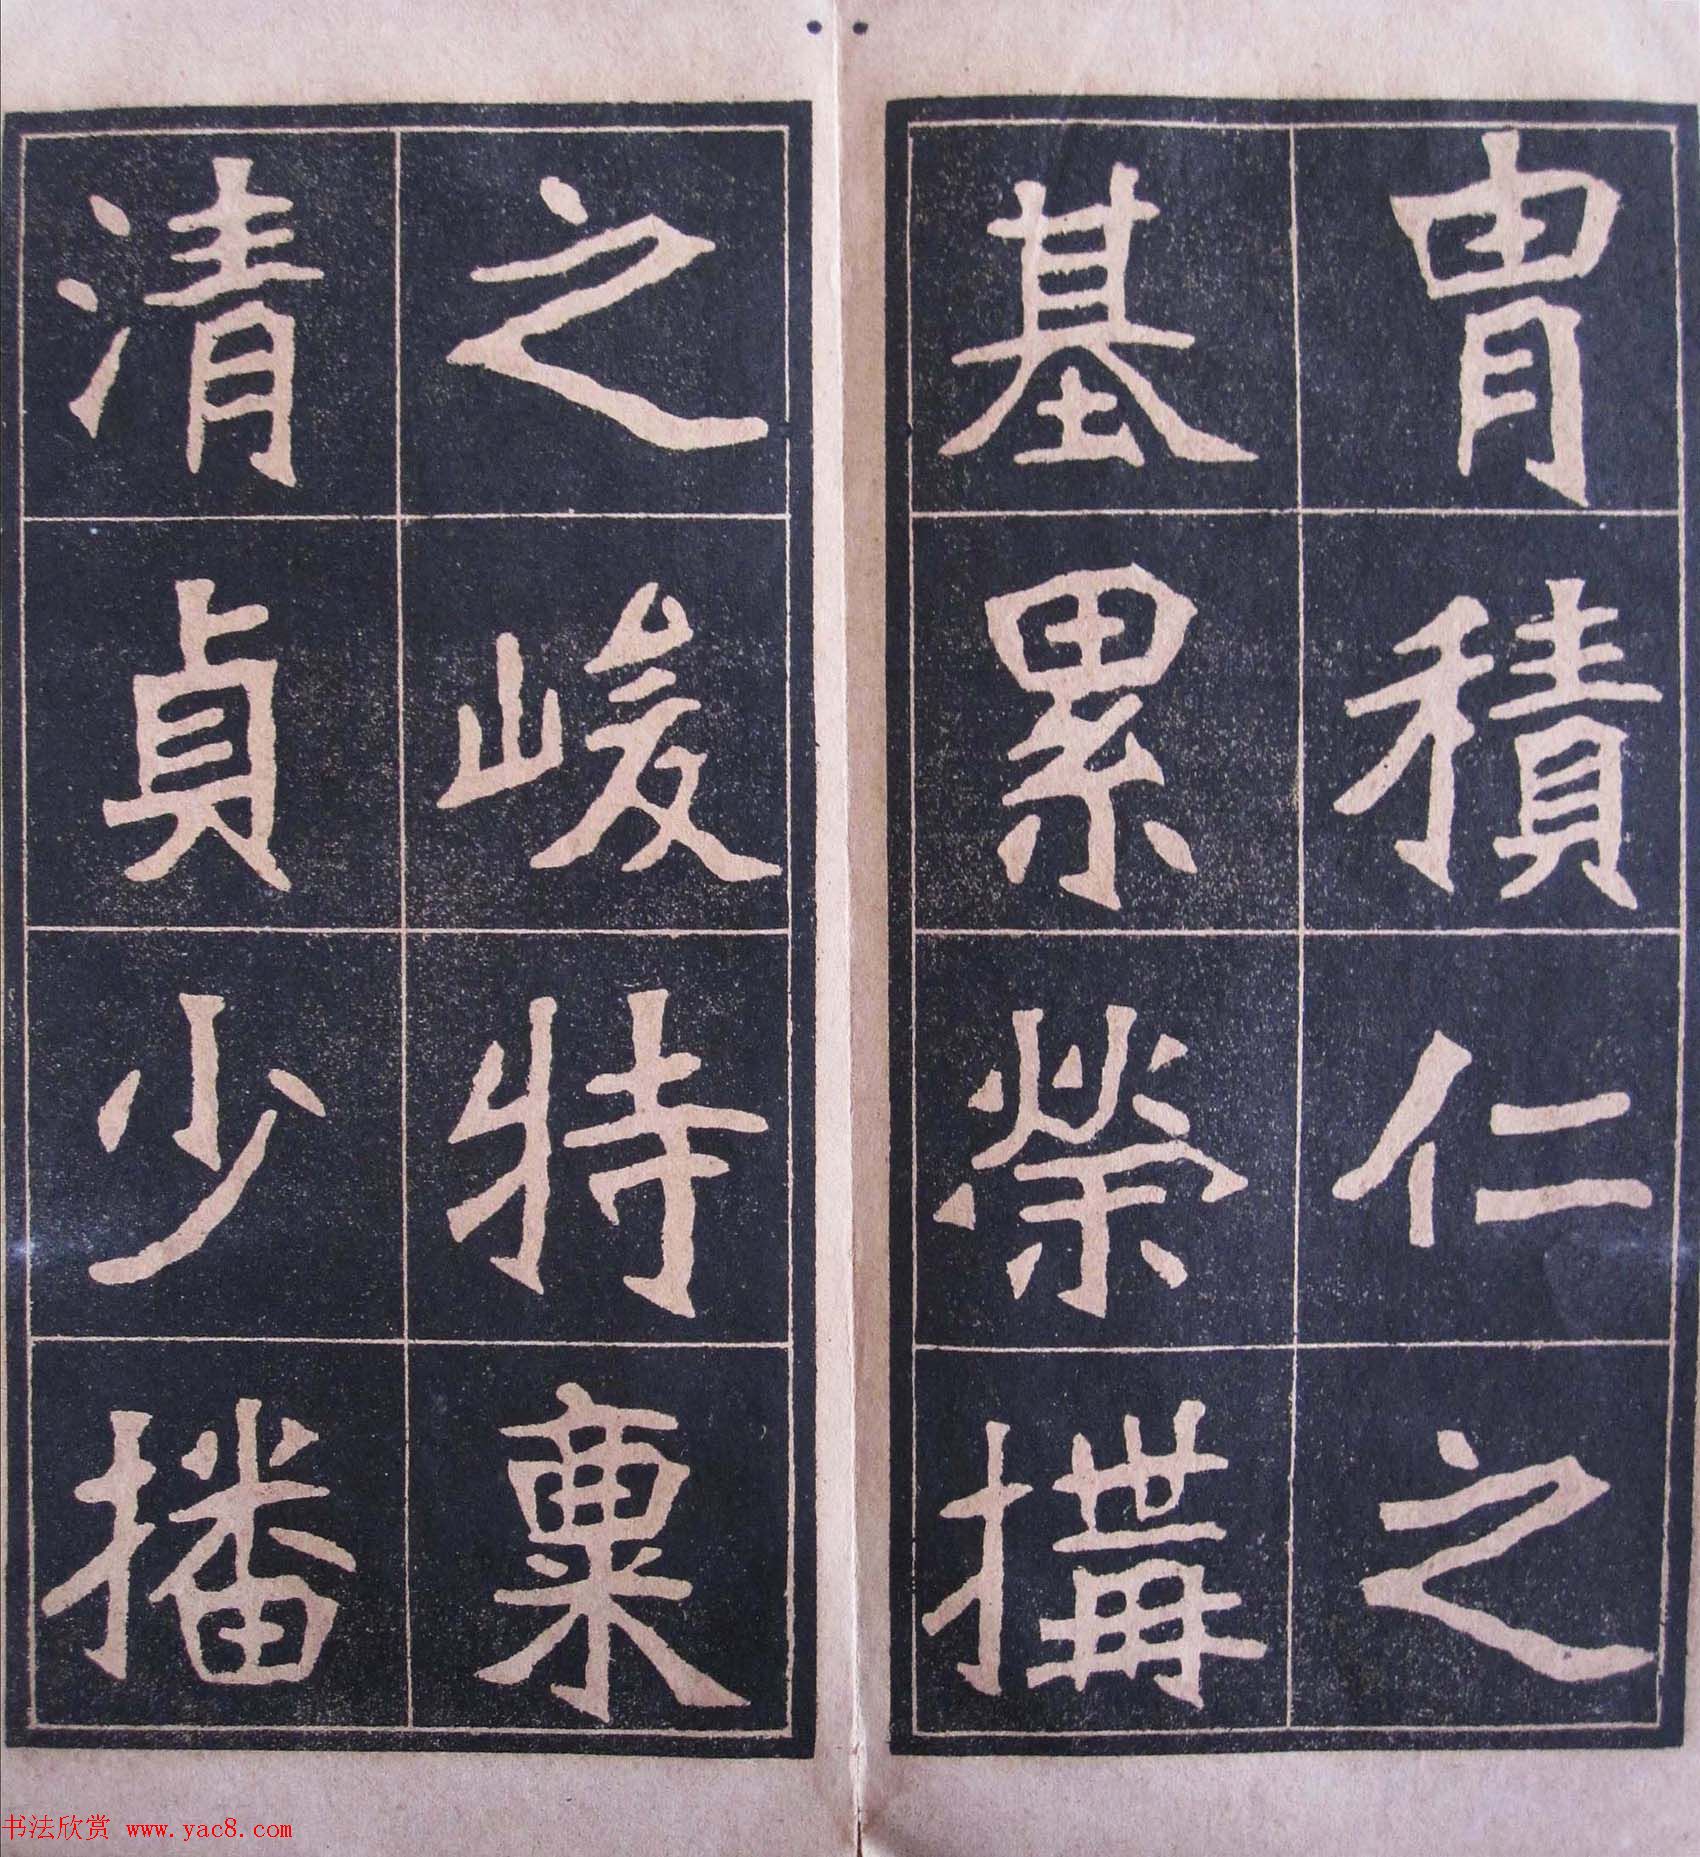 胄積仁之
基累榮構
之峻特稟
清貞少播
书法欣赏 www.yac8.com